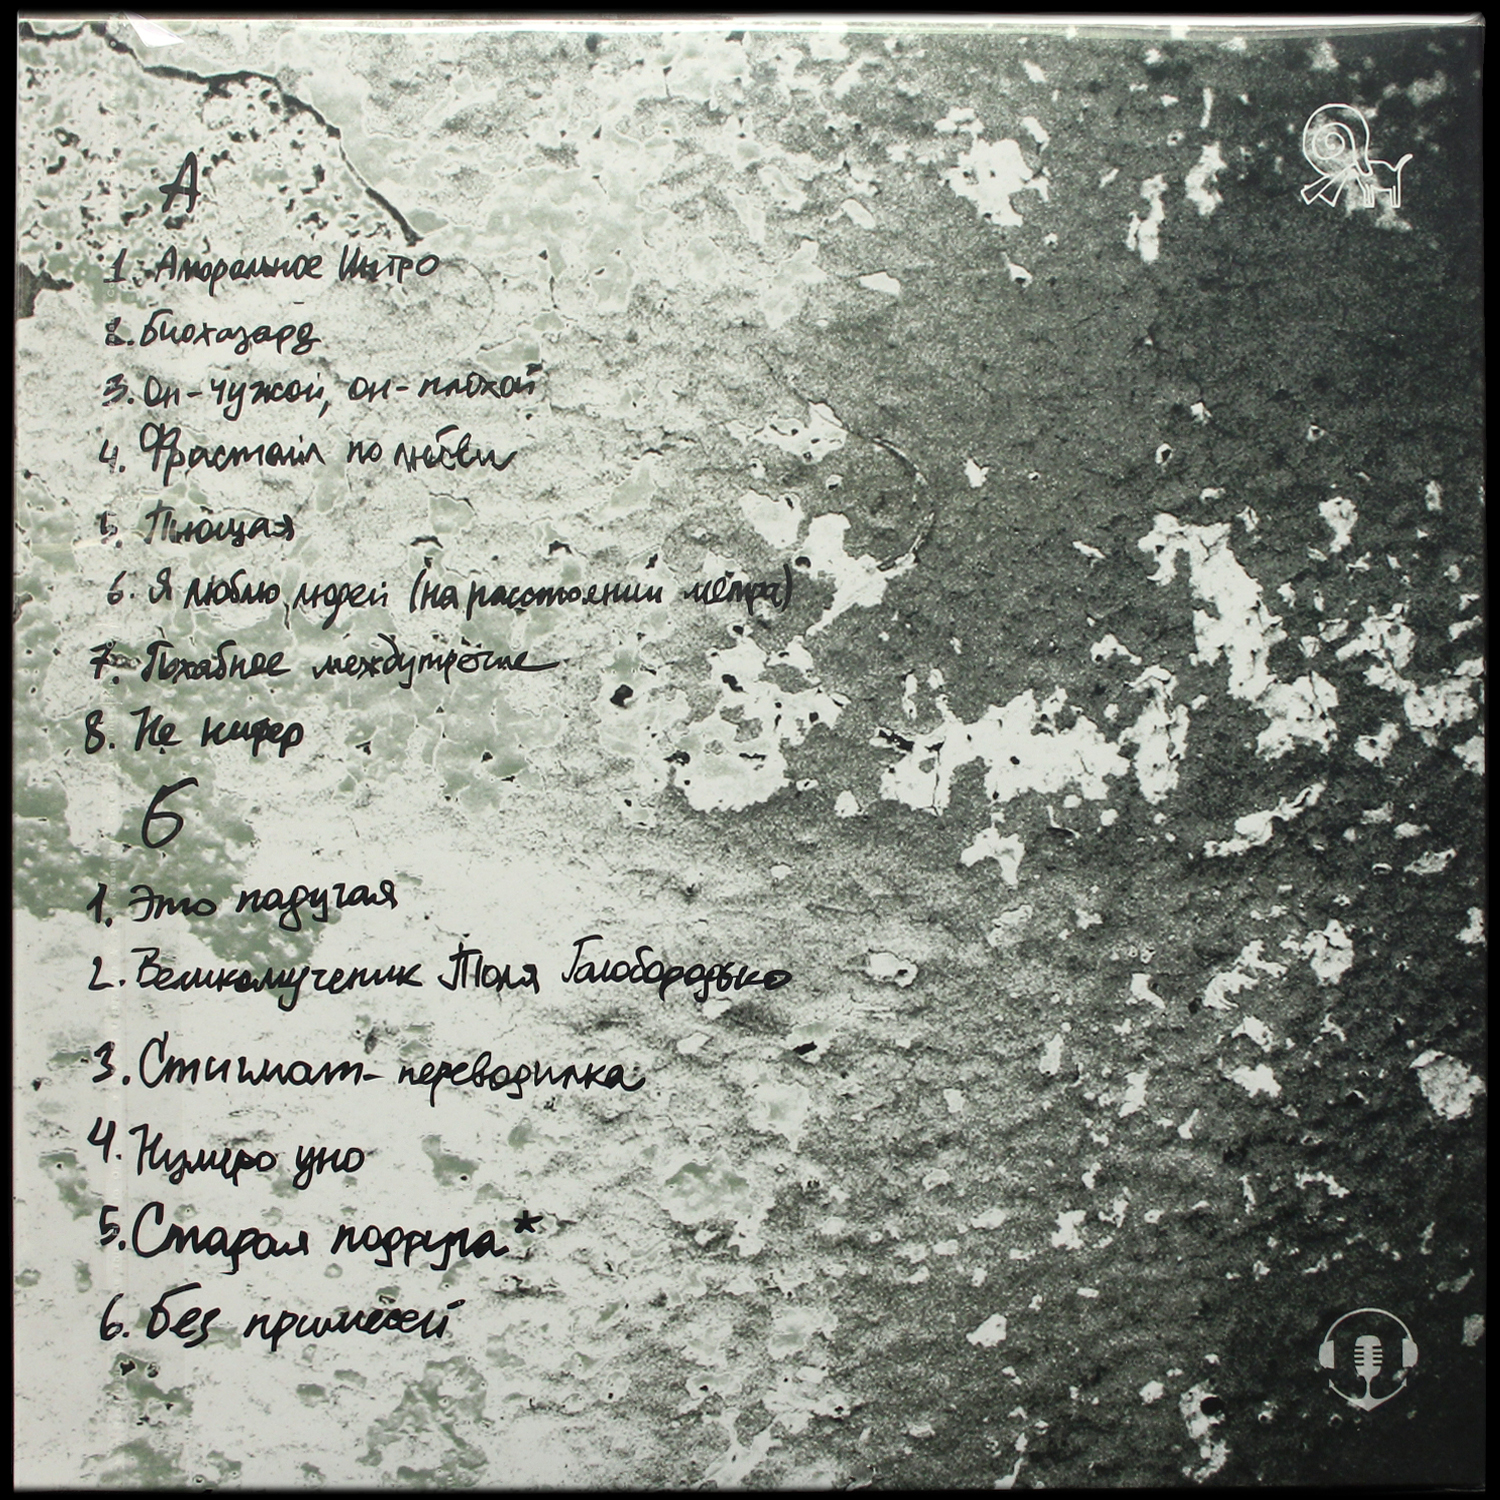 А
1. Аморальное Интро
2. Биохазард
3. Он-чужой, он-плохой
4. Фристайл по любви
5. Пьющая
6. Я люблю людей (на расстоянии метра)
7. Похабное
8. Не
Б
1. Это падучая
2. Великомученик Толя Голобородько
3. Стигмат-переводилка
4. Нумеро уно
5. Старая подруга*
6. Без примесей